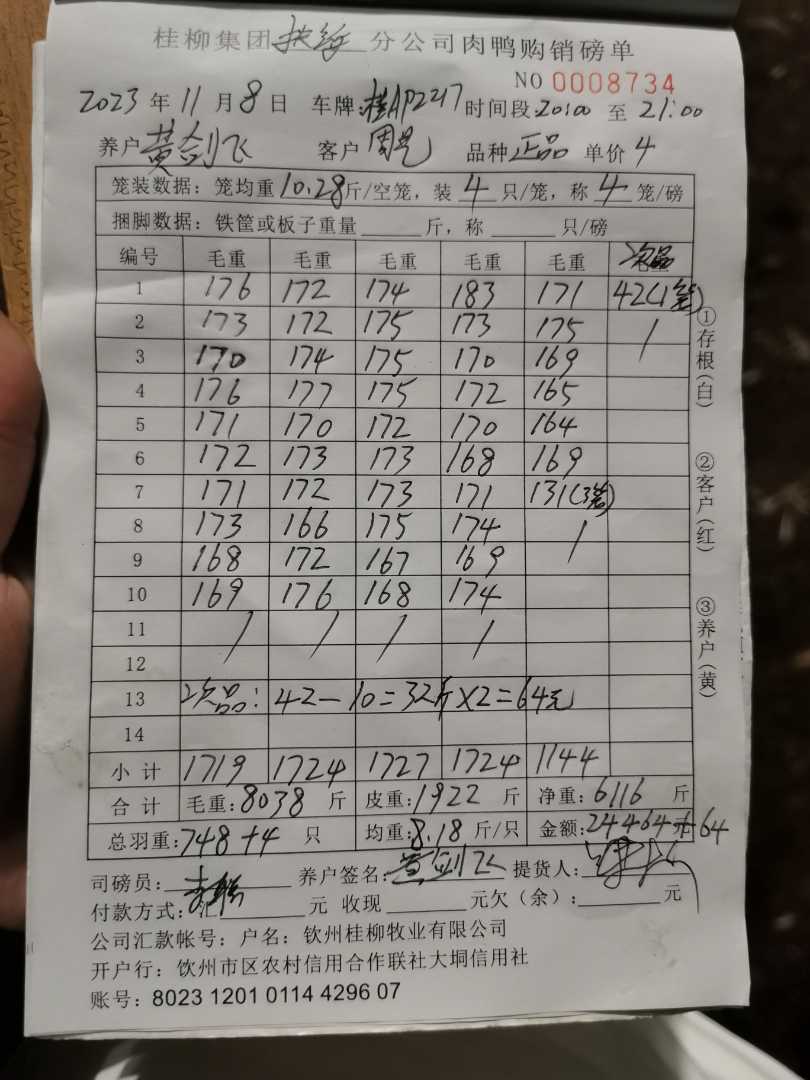 桂柳集团 扶绥 分公司肉鸭购销磅单
NO 0008734
2023 年 11 月 8 日 车牌:桂AP2217 时间段:20:00 至 21:00
养户 黄剑飞 客户 周 品种 正品 单价 4
笼装数据：笼均重 10.28 斤/空笼，装 4 只/笼，称 4 笼/磅
捆脚数据：铁筐或板子重量 斤，称 只/磅
编号 毛重 毛重 毛重 毛重 毛重 次品
1 176 172 174 183 171 42(1笼)
2 173 172 175 173 175 /
3 170 174 175 170 169
4 176 177 175 172 165
5 171 170 172 170 164
6 172 173 173 168 169
7 171 172 173 171 131(3笼)
8 173 166 175 174 /
9 168 172 167 169
10 169 176 168 174
11 / / / /
12
13 次品: 42-10=32斤×2=64元
14
小计 1719 1724 1727 1724 1144
合计 毛重:8038 斤 皮重:1922 斤 净重:6116 斤
总羽重:748+4 只 均重:8.18 斤/只 金额:24464+64
司磅员: 养户签名:黄剑飞 提货人:
付款方式:汇 元 收现 元欠（余）: 元
公司汇款帐号：户名：钦州桂柳牧业有限公司
开户行：饮州市区农村信用合作联社大垌信用社
账号：8023 1201 0114 4296 07
①存根(白)
②客户(红)
③养户(黄)